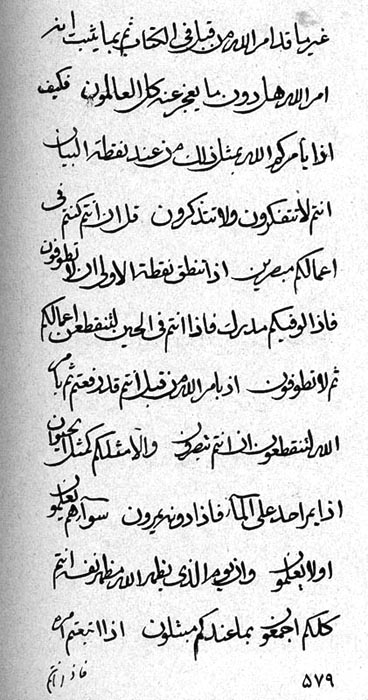 غير ما قد امر الله من قبل في الكتاب ثم بما يثبت انه
امر الله هل دون ما يعجز عنه كل العالمون فكيف
اذا يأمركم الله بمثل ذلك من عند نقطة البيان
انتم لا تتفكرون ولا تتذكرون قل ان انتم كنتم في
اعمالكم مبصرين اذا تنطق نقطة الاولى ان لا تطوفون
فاذا لو فيكم مدرك فاذا انتم في الحين لتنقطعن اعمالكم
ثم لا تطوفون اذ بامر الله من قبل انتم قد رفعتم ثم بامر
الله لتنقطعون ان انتم تبصرون والا مثلكم كمثل الحيوان
اذا يمر احد على الماء فاذا دونه يمرون سواء هم يعلمون
او لا يعلمون وان يوم الذي يظهر الله مظهر نفسه انتم
كلكم اجمعون بما عندكم مبتلون اذا اتبعتم امره
فاذا انتم
٥٧٩